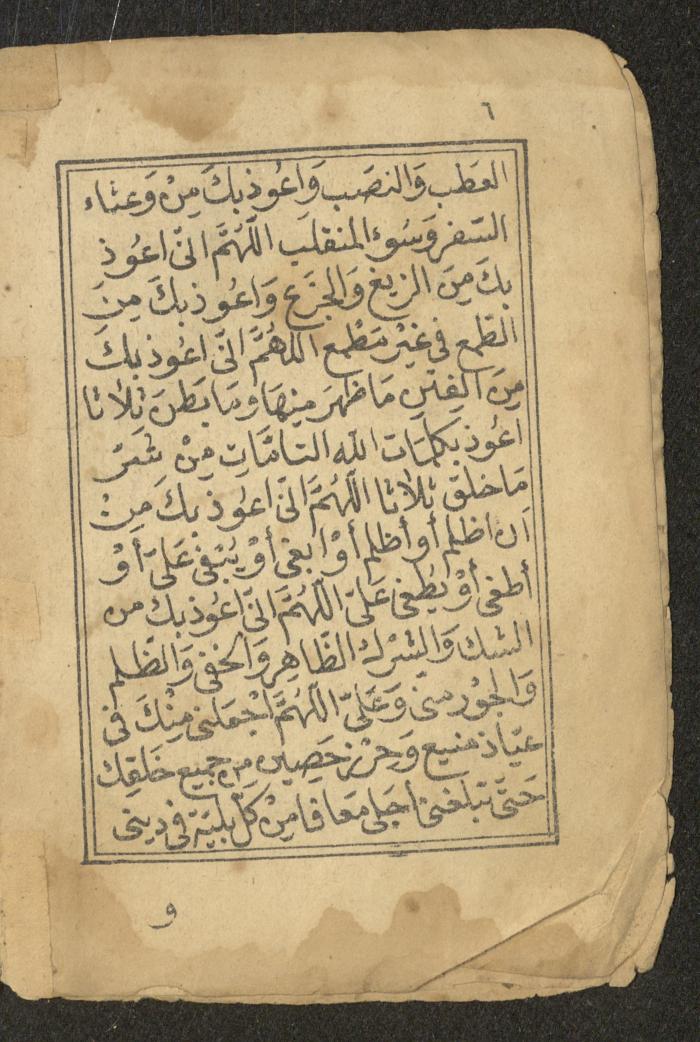 ٦
العطب والنصَب وَاعُوذ بكَ مِنْ وَعثاء
السّفر وَسُوء المنقلب اللّهُمَّ انّى اعُوذ
بكَ مِنَ الزيغ وَالجزَع وَاعُوذ بكَ مِنَ
الطمع فى غيْر مَطْمع اللّهُمَّ انّى اعُوذ بكَ
مِنَ الفِتَنِ مَا ظهَرَ مِنهَا ومَا بَطنَ ثلاثا
اعُوذ بكلمَات الله التامَّاتِ مِنْ شرّ
مَا خلق ثلاثا اللّهُمَّ انّى اعُوذ بكَ مِنْ
اَن اظلِم أو أظلم أوْ ابغى أوْ يُبْغى عَلىّ أوْ
أطغى أوْ يُطغى عَلىّ اللّهُمَّ انّى اعُوذ بك من
الشك وَالشرك الظّاهِر وَالخفى وَالظّلم
وَالجوْر منّى وَعَلىّ اللّهُمَّ اجْعَلنى مِنْكَ فى
عيَاذ منيع وَحرْز حَصِين من جميع خَلقِكَ
حَتىّ تبلغنى اجَلى مَعَافا مِنْ كلّ بليّة فى دينى
و